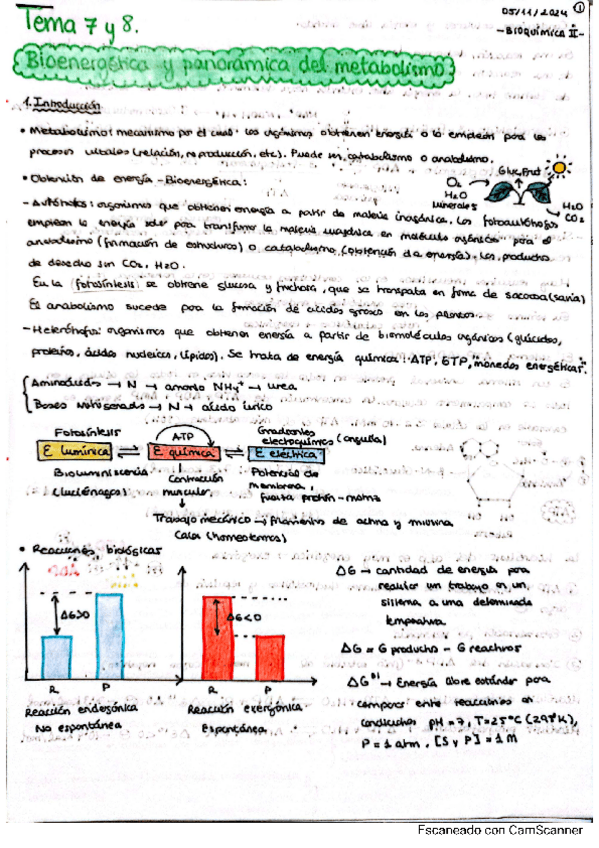 05/11/2024 1
Tema 7 y 8.
-BIOQUÍMICA II-
Bioenergética y panorámica del metabolismo
1. Introducción
• Metabolismo: mecanismo por el cual los organismos obtienen energía o la emplean para los
procesos vitales (relación, reproducción, etc.). Puede ser catabolismo o anabolismo.
• Obtención de energía - Bioenergética:
Gluc, Fruct
O₂
H₂O
Minerales
H₂O
CO₂
- Autótrofos: organismos que obtienen energía a partir de materia inorgánica. Los fotoautótrofos
emplean la energía solar para transformar la materia inorgánica en moléculas orgánicas para el
anabolismo (formación de estructuras) o catabolismo (obtención de energía). Los productos
de desecho son CO₂, H₂O.
En la (fotosíntesis) se obtiene glucosa y fructosa, que se transporta en forma de sacarosa (savia)
El anabolismo sucede para la formación de ácidos grasos en las plantas.
- Heterótrofos: organismos que obtienen energía a partir de biomoléculas orgánicas (glúcidos,
proteínas, ácidos nucleicos, lípidos). Se trata de energía química: ATP, GTP, "monedas energéticas".
Aminoácidos → N → amonio NH₄⁺ → urea
Bases nitrogenadas → N → ácido úrico
Fotosíntesis
ATP
Gradientes
electroquímicos (anguila)
E lumínica ⇌ E química ⇌ E eléctrica
Bioluminiscencia
(luciérnagas)
Contracción
muscular
Potencial de
membrana,
fuerza protón-motriz
Trabajo mecánico → filamentos de actina y miosina
Calor (homeotermos)
• Reacciones biológicas
ΔG>0
R P
Reacción endergónica
No espontánea
ΔG<0
R P
Reacción exergónica
Espontánea
ΔG → cantidad de energía para
realizar un trabajo en un
sistema a una determinada
temperatura.
ΔG = G productos - G reactivos
ΔG°' → Energía libre estándar para
comparar entre reacciones en
condiciones pH = 7, T=25°C (298°K),
P = 1 atm, [S y P] = 1 M
Escaneado con CamScanner